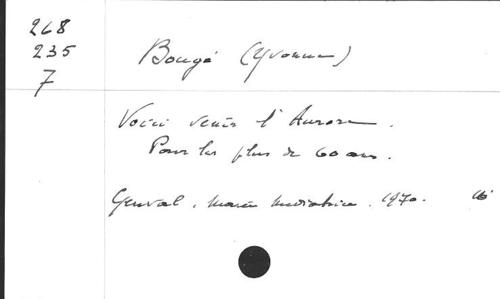 268
235
7
Bougé (Yvonne)
Voici venir l'Aurore.
Pour les plus de 60 ans.
Genval, Marie Médiatrice, 1970.